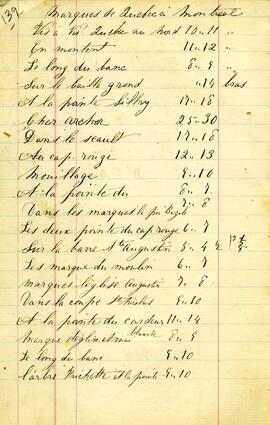 139
Marques de Quebec à Montreal
Vis a vis Quebc au Nord 10 .. 11 "
En montent 11 .. 12 "
Le long du banc 8 .. 9 "
Sur le baille grond " 14 bras
A la pointe Sillry 17 .. 18
Cher archer 25 .. 30
Dans le seault 17 .. 18
Au cap rouge 12 .. 13
Mouillage 9 .. 10
A la pointe du 8 .. 7
Dans les marques le 7 .. 8
Les deux pointe du cap rouge 6 .. 7
Sur la barre St Augustin
Les marque du moulin 6 .. 7
marques l'eglise Augustin 7 .. 8
Dans le coupe St Nicolas 9 .. 10
A la pointe du cardeur 11 .. 14
Marque d'eglise 8 .. 9
Le long du banc 9 .. 10
l'arbre Frichette et la pointe 9 .. 10